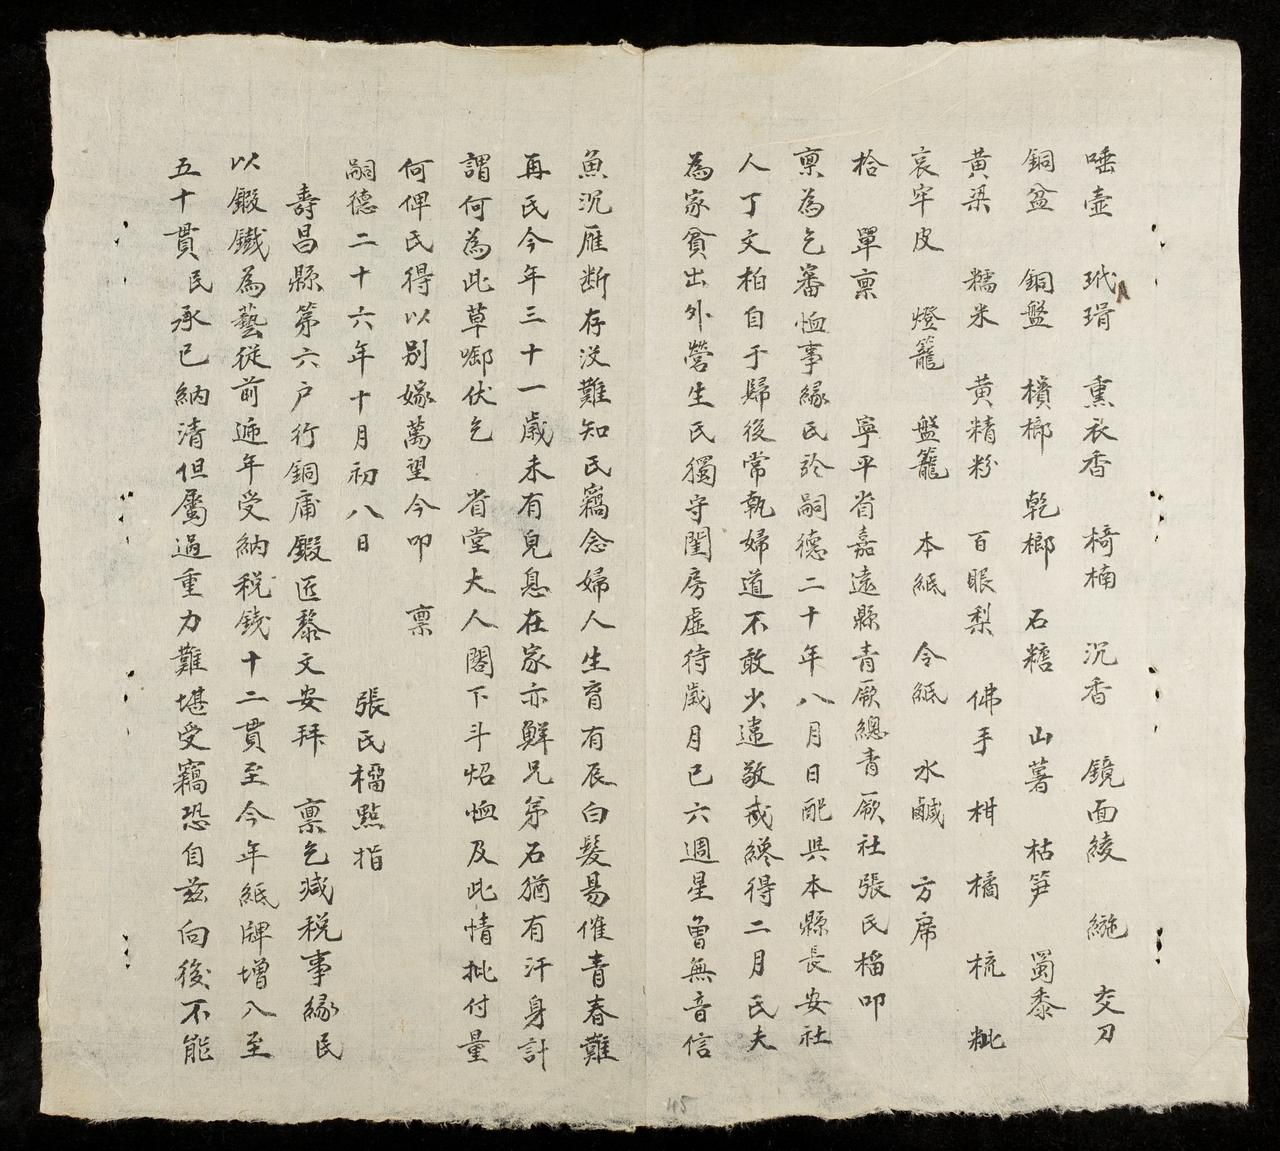 唾壺 玳瑁 熏衣香 椅楠 沉香 鏡面綾 縰 交刀
銅盆 銅盤 檳榔 乾榔 石糖 山薯 枯笋 蜀黍
黄梁 糯米 黄精粉 百眼梨 佛手 柑 橘 梳 粃
哀牢皮 燈籠 盤籠 本紙 令紙 水鹹 方席
拾 單禀 寧平省嘉遠縣青厥總青厥社張氏榴叩
禀為乞審恤事緣民於嗣德二十年八月日配與本縣長安社
人丁文柏自于歸後常執婦道不敢少違敬戒纔得二月民夫
為家貧出外營生民獨守閨房虛待歲月已六週星曾無音信
魚沉雁断存没難知民竊念婦人生育有辰白髮易催青春難
再民今年三十一歲未有兒息在家亦鮮兄弟石猶有汗身計
謂何為此草啣伏乞 省堂大人閣下斗炤恤及此情批付量
何俾民得以别嫁萬望今叩 禀
嗣德二十六年十月初八日 張氏榴點指
壽昌縣第六户行銅庯鍛匠黎文安拜 禀乞减税事緣民
以鍛鐵為藝從前遞年受納税銭十二貫至今年紙牌增八至
五十貫民承已納清但屬過重力難堪受竊恐自兹向後不能
45